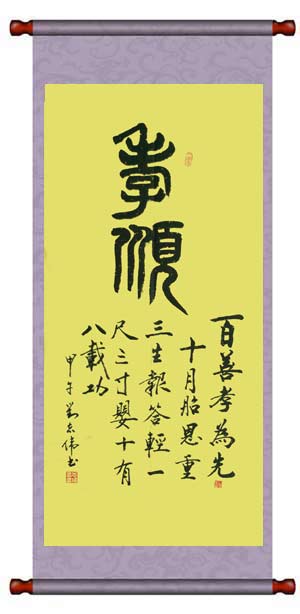 孝順
百善孝為先
十月胎恩重
三生報答輕一
尺三寸嬰十有
八載功
甲午偉书